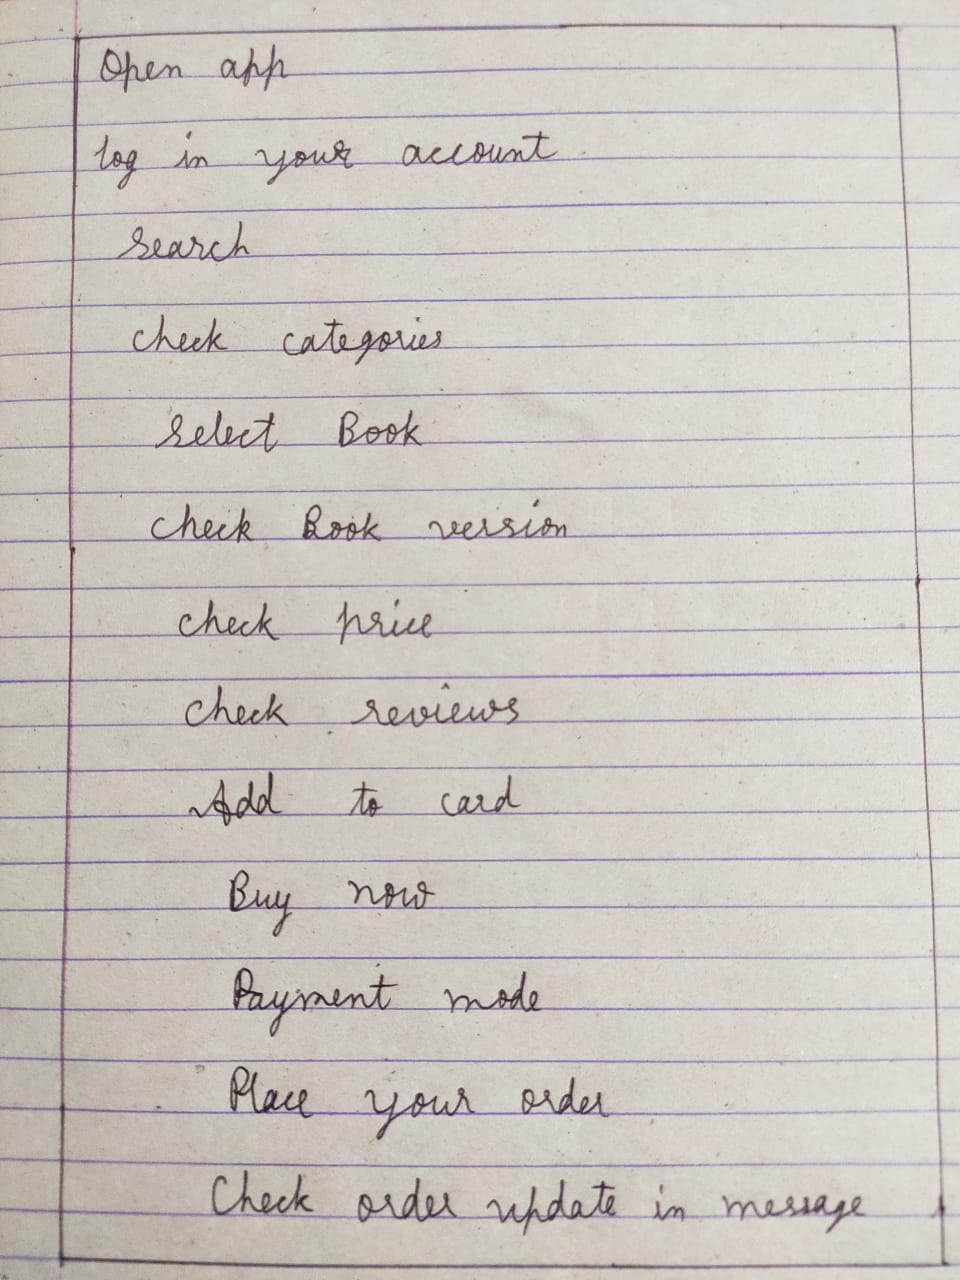 Open app
log in your account
Search
check categories
Select Book
check Book version
check price
check reviews
Add to card
Buy now
Payment mode
Place your order
Check order update in message